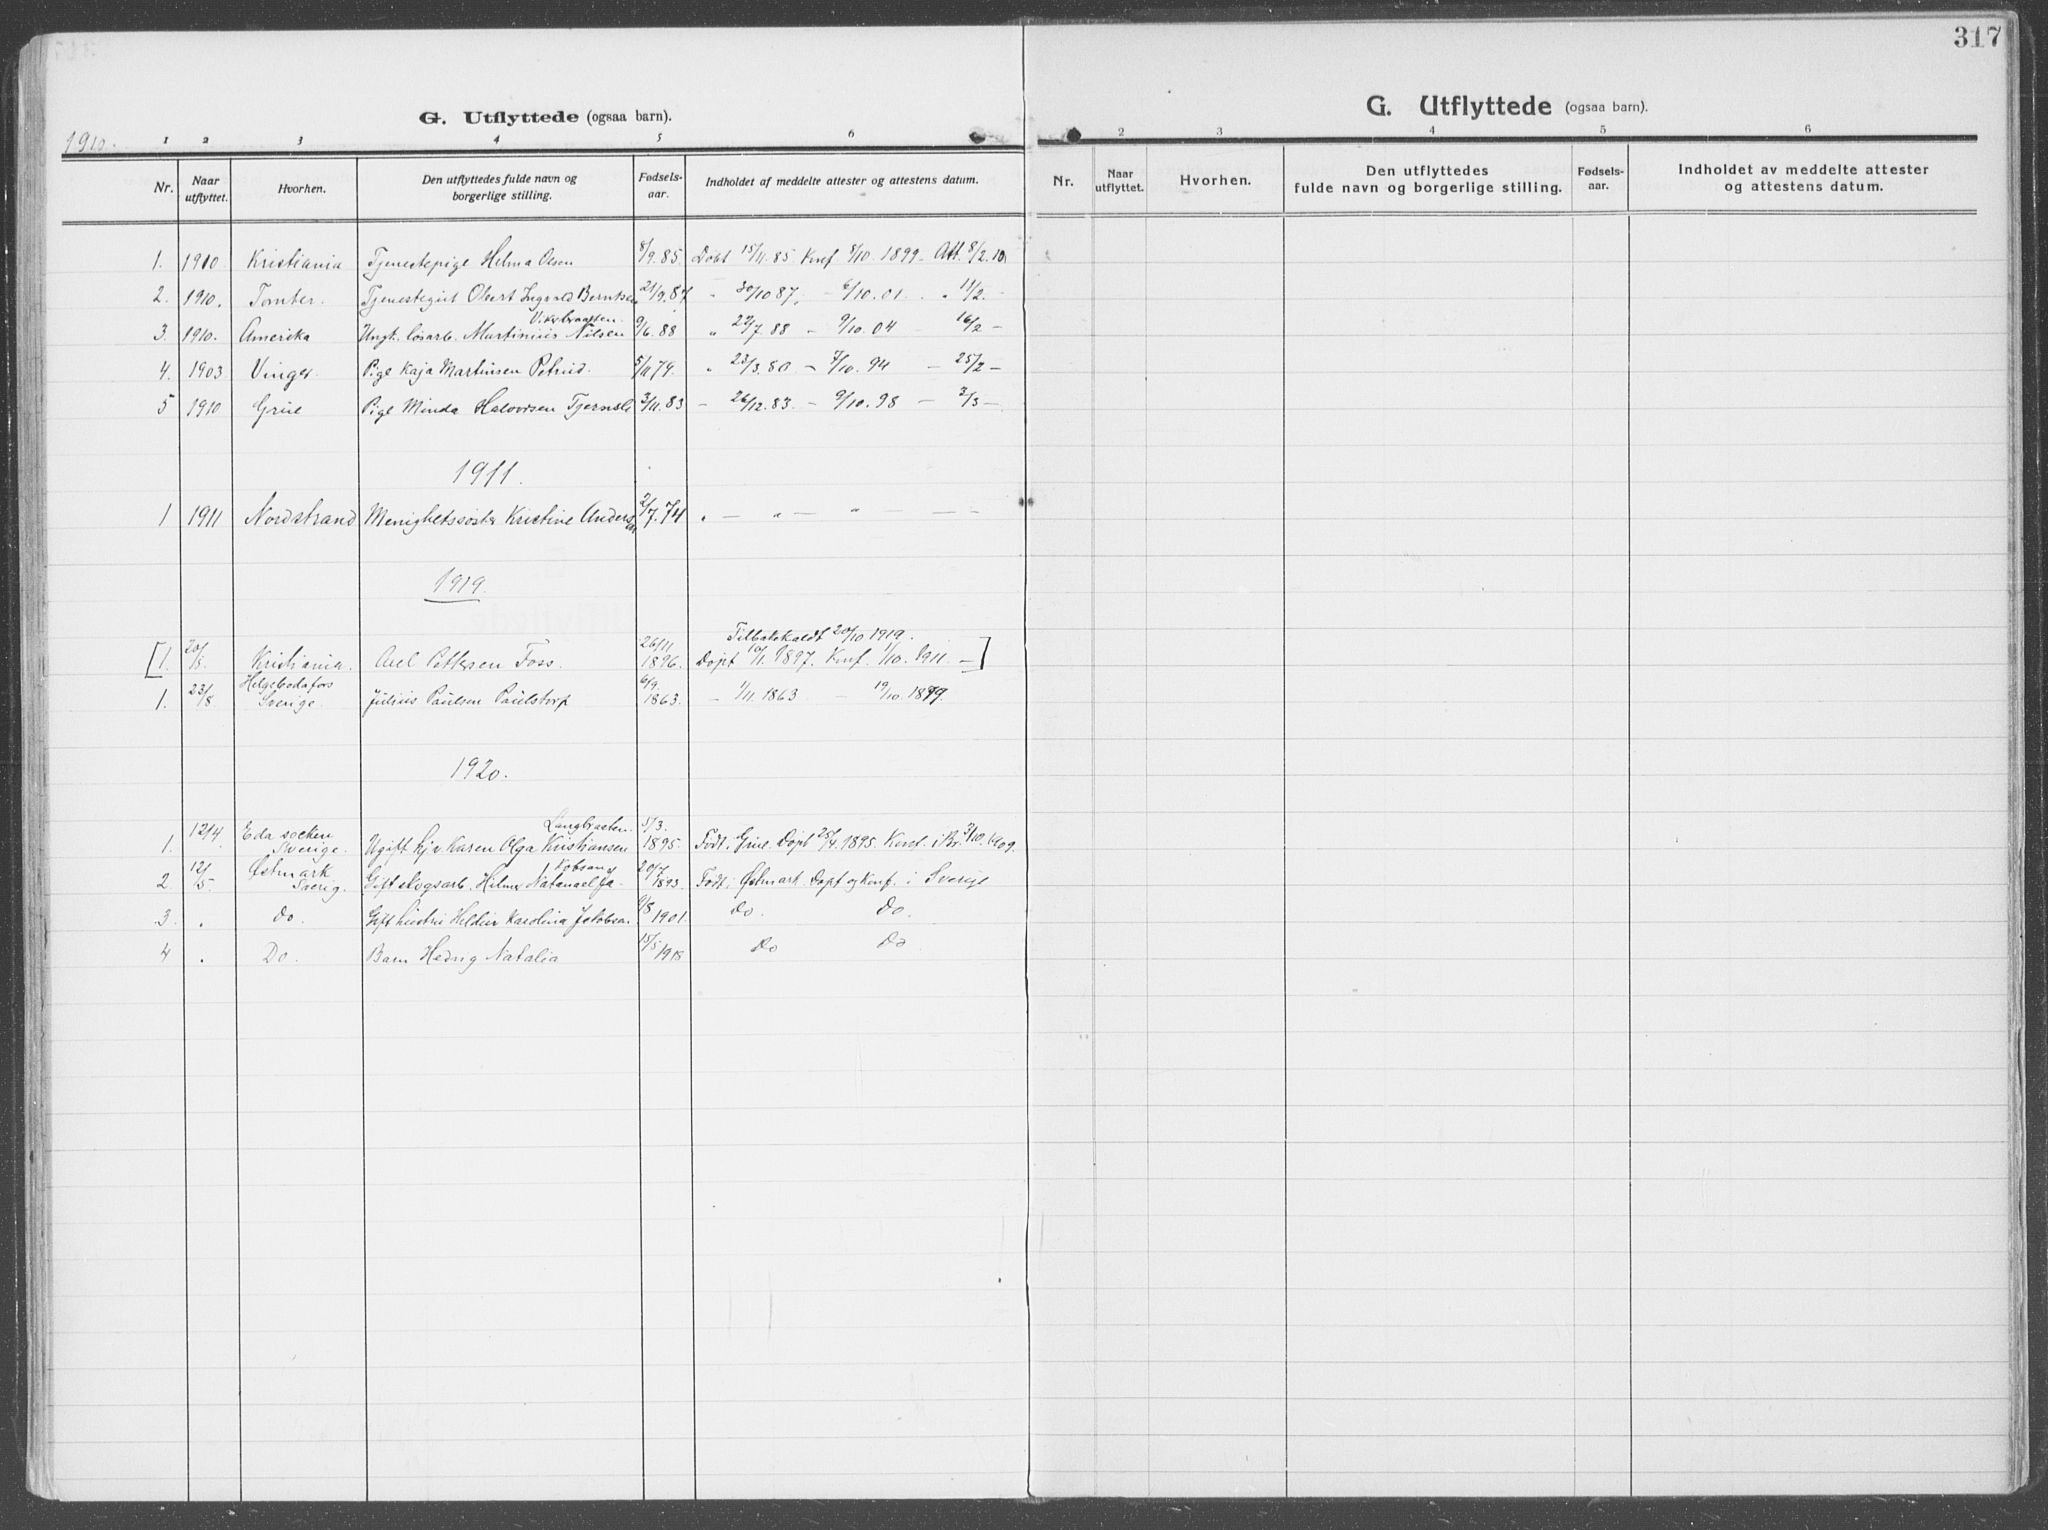 317
G. Utflyttede (ogsaa barn).
1910.
1 2 3 4 5 6
Nr. Naar utflyttet. Hvorhen. Den utflyttedes fulde navn og borgerlige stilling. Fødsels-aar. Indholdet af meddelte attester og attestens datum.
1. 1910 Kristiania Tjenestepige Helma Olsen 8/9.85 Døbt 15/11.85 Knf 8/10.1899. Att. 8/2.10
2. 1910. Tomter. Tjenestegut Olvert Ingvald Berntsen 21/9.87 " 30/10 87, - 6/10.01. . " 11/2. -
Vikerbraaten.
3. 1910. Amerika Ungk. løsarb. Martinius Nilsen 9/6.88 " 22/7 88 - 9/10.04 - 16/2 -
4. 1903 Vinger. Pige Kaja Martinsen Petrud. 5/11 79. " 23/3.80 - 7/10.94 - 25/2 -
5 1910 Grue Pige Minda Halvorsen Tjernsli 3/11.83 - 26/12.83. - 9/10.98 - 2/3 -
1911.
1 1911 Nordstrand Menighetssøster Kristine Andersen 2/7.74 " - " - " - - -
1919.
Tilbakekaldt 20/10 1919.
[1. 20/8. Kristiania. Axel Pettersen Foss. 26/11 1896. Døpt 10/1.1897. Konf. 1/10.1911. -]
1. 23/8 Helgebodafors Sverige. Julius Paulsen Paulstorp 6/9 1863. - 1/11.1863 - 19/10.1879.
1920.
Langbraaten.
1. 12/4 Eda socken Sverige. Ugift hj.v Karen Olga Kristiansen 5/3. 1895. Født i Grue. Døpt 28/4.1895. Konf. i Br. 3/10.1909.
2. 12/5. Østmark Sverig. Gift skogsarb. Hilmer Natanael Jakobsen 20/7 1893. Født i Østmark. Døpt og konf. i Sverige
3. " Do. Gift hustru Heldur Karolina Jakobsen. 9/8 1901. Do. Do.
4 " Do. Barn Hedvig Natalia 15/5 1918 Do Do
G. Utflyttede (ogsaa barn).
2 3 4 5 6
Nr. Naar utflyttet. Hvorhen. Den utflyttedes fulde navn og borgerlige stilling. Fødsels-aar. Indholdet av meddelte attester og attestens datum.